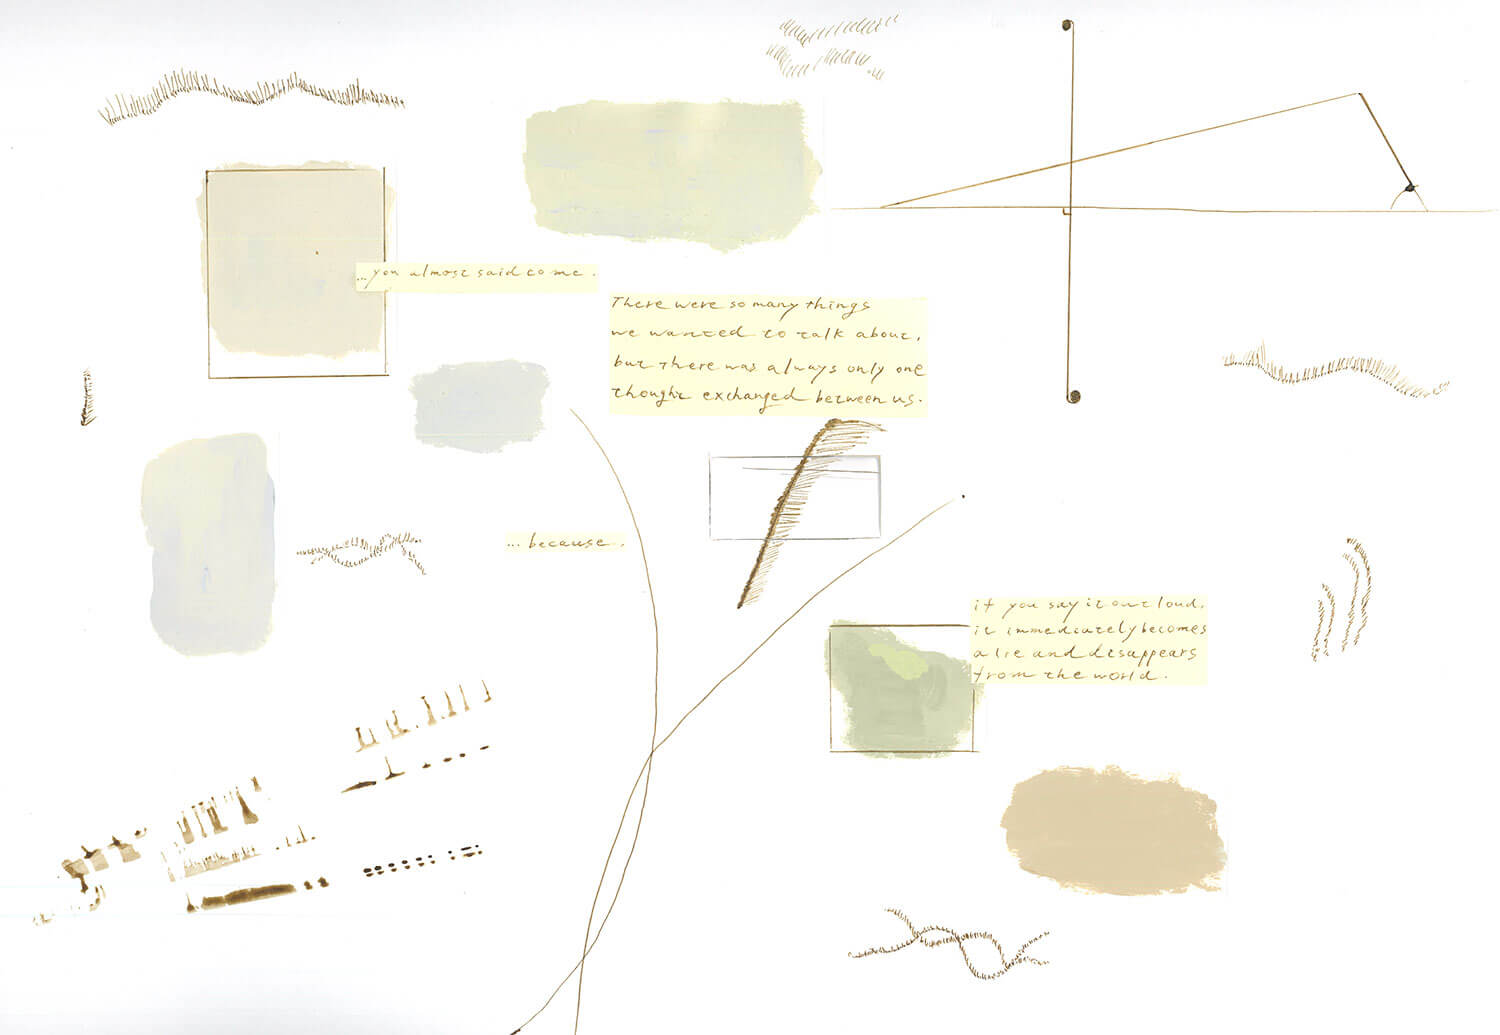 ...you almost said come.
There were so many things
we wanted to talk about,
but there was always only one
thought exchanged between us.
...because.
if you say it out loud,
it immediately becomes
a lie and disappears
from the world.